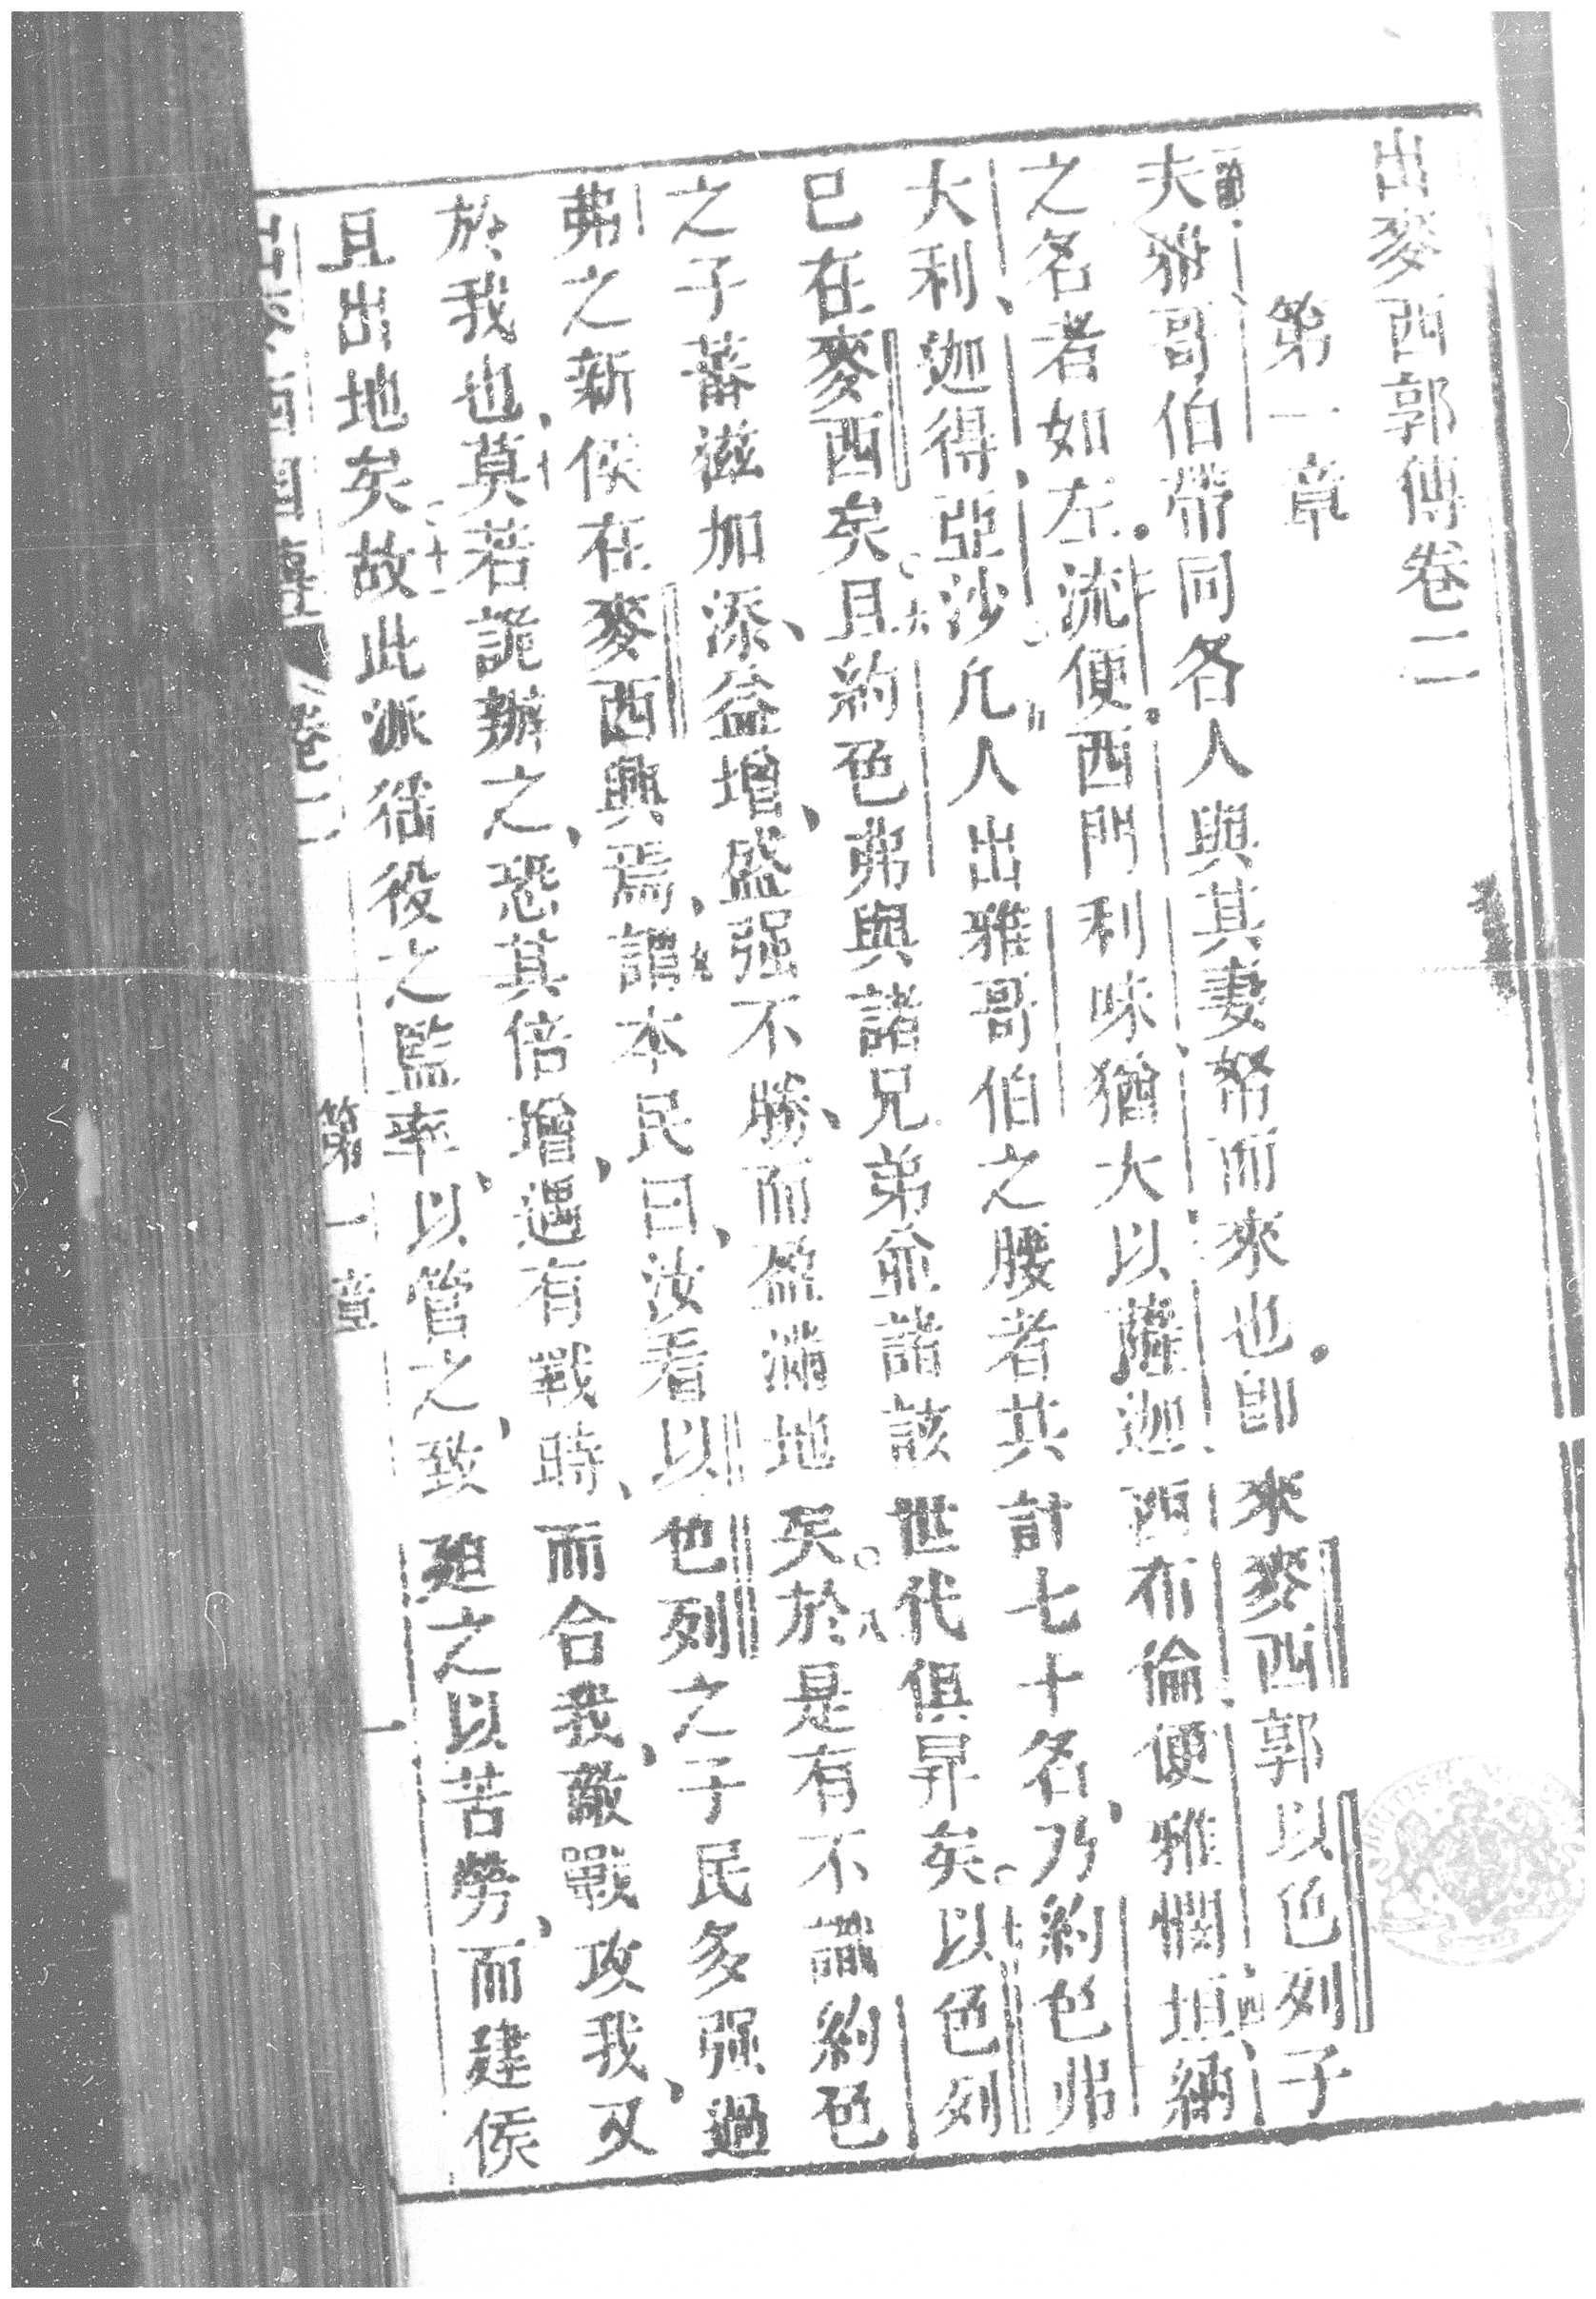 出麥西郭傳卷二
第一章
夫雅哥伯帶同各人與其妻帑而來也即來麥西郭以色列子
之名者如左流便西門利味猶大以薩迦西布倫便雅憫垣納
大利迦得亞沙凡人出雅哥伯之腰者共計七十名乃約色弗
已在麥西矣且約色弗與諸兄弟並諸該世代俱昇矣以色列
之子蕃滋加添益增盛强不勝而盈滿地矣於是有不識約色
弗之新侯在麥西興焉謂本民曰汝看以色列之子民多强過
於我也莫若詭辦之恐其倍增遇有戰時而合我敵戰攻我又
且出地矣故此派徭役之監率以管之致廹之以苦勞而建侯
卷二 第一章 一